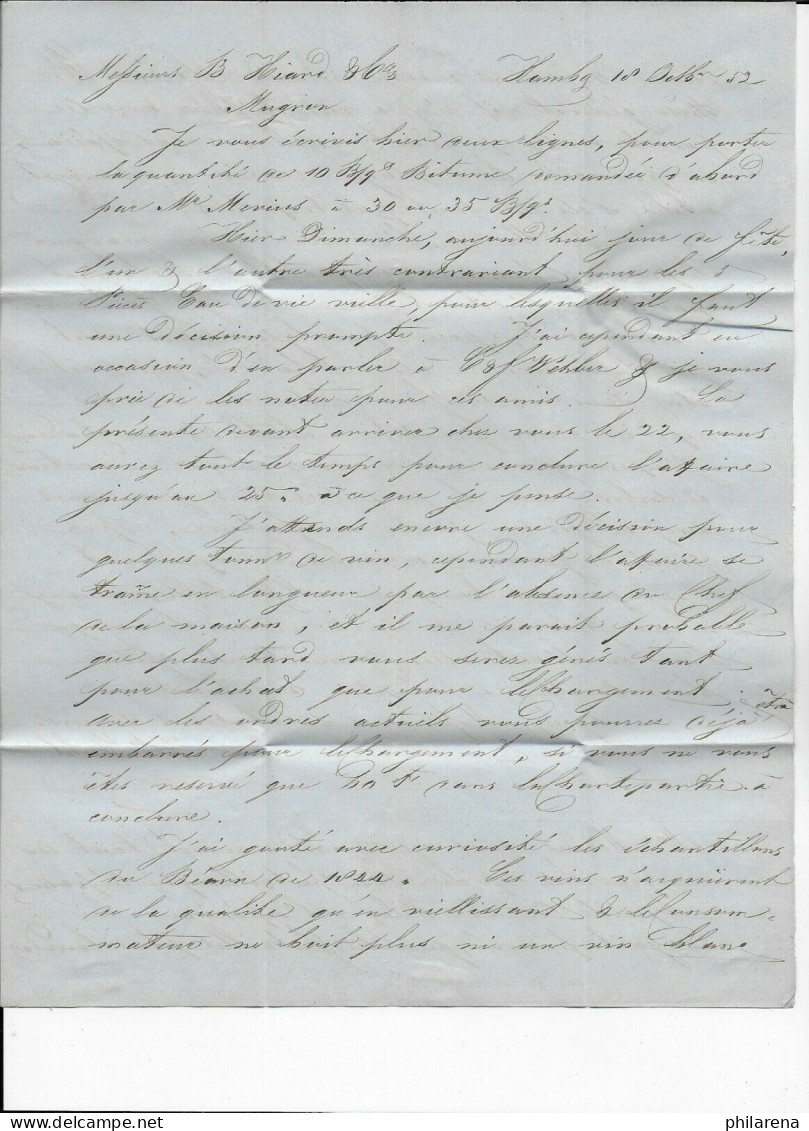 Messieurs B Hiard & Cie Hambg 18 Octbr 52
Mugron
Je vous écrivis hier deux lignes, pour porter
la quantité de 10 B/qs Bitume demandée d'abord
par Mr Merius à 30 ou 35 B/qs.
Hier Dimanche, aujourd'hui jour de fête,
l'un & l'autre très contrariant pour les 5
Pièces Eau de vie vieille, pour lesquelles il faut
une décision prompte. J'ai cependant eu
occasion d'en parler à & je vous
prie de les noter pour ces amis. La
présente devant arriver chez vous le 22, vous
aurez tout le temps pour conclure l'afaire
jusqu'au 25. à ce que je pense.
J'attends encore une décision pour
quelques tonnx de vin, cependant l'afaire se
traîne en longueur par l'absence du Chef
de la maison, et il me parait probable
que plus tard vous serez gênés tant
pour l'achat que pour le Chargement.
Avec les ordres actuels vous pourrez déjà être
embarrés pour le Chargement, si vous ne vous
êtes reservé que dans la Chartepartie à
conclure.
J'ai gouté avec curiosité les échantillons
du Béarn de 1844. Ces vins n'acquièrent
de la qualité qu'en vieillissant & le Consom-
mateur ne boit plus ni un vin blanc
philarena.com